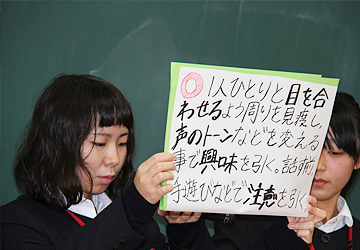 ○1人ひとりと目を合
わせるよう周りを見渡し、
声のトーンなどを変える
事で興味を引く。話す前
手遊びなどで注意を引く